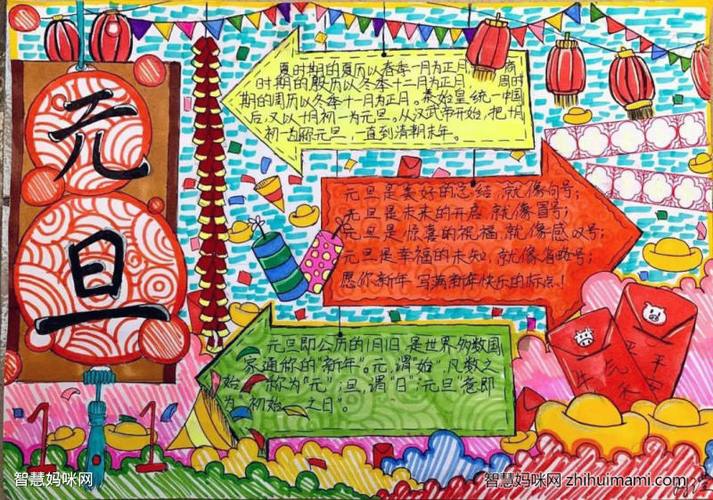 元
旦
夏时期的夏历以春季一月为正月,
时期的殷历以冬季十二月为正月, 周时
期的周历以冬季十一月为正月。秦始皇统一中国
后,又以十月初一为元旦。从汉武帝开始,把1月
初一当做元旦,一直到清朝末年。
元旦是美好的总结,就像句号;
元旦是未来的开启,就像冒号;
元旦是惊喜的祝福,就像感叹号;
元旦是幸福的未知,就像省略号;
愿你新年,写满新年快乐的标点!
元旦即公历的1月1日,是世界多数国
家通称的"新年"。元,谓"始",凡数之
始 称为"元";旦,谓"日";"元旦"意即
为"初始 之日"。
1 1
平安
智慧妈咪网
智慧妈咪网 zhihuimami.com